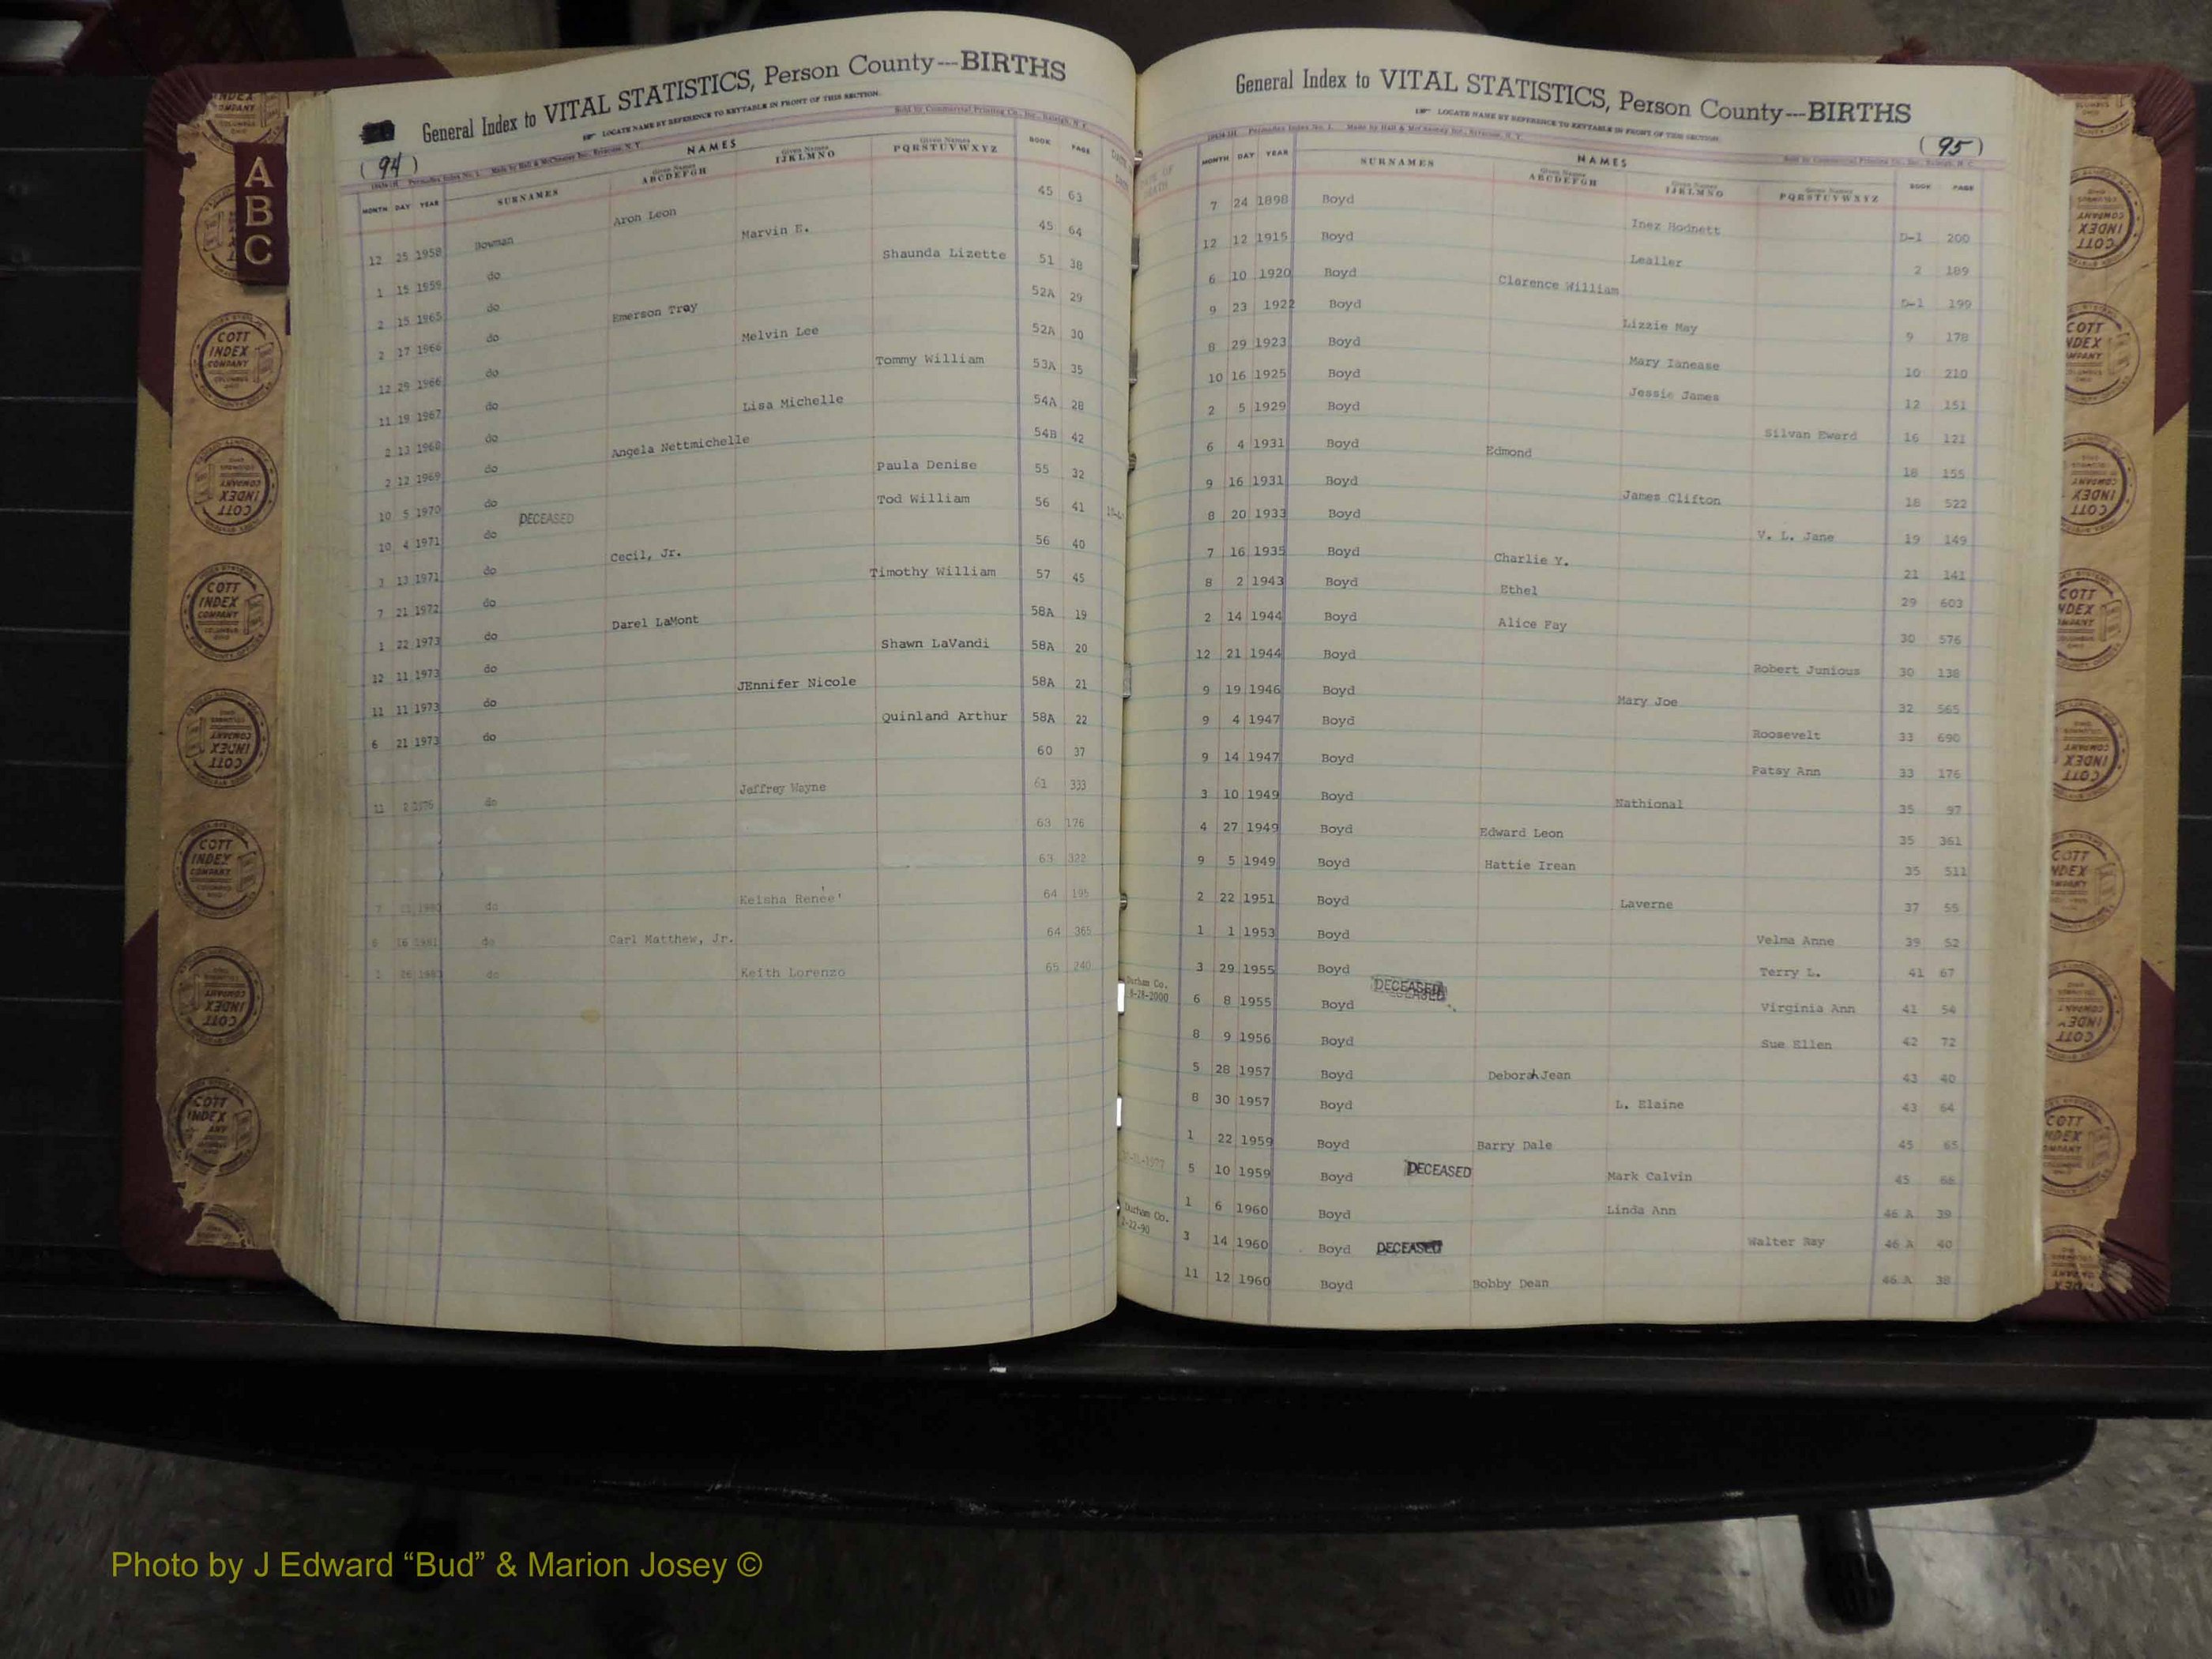 General Index to VITAL STATISTICS, Person County---BIRTHS
LOCATE NAME BY REFERENCE TO KEYTABLE IN FRONT OF THIS SECTION.
(94)
A
B
C
NAMES
MONTH DAY YEAR SURNAMES Given Names ABCDEFGH Given Names IJKLMNO Given Names PQRSTUVWXYZ BOOK PAGE
12 25 1958 Bowman Aron Leon 45 63
1 15 1959 do Marvin E. 45 64
2 15 1965 do Shaunda Lizette 51 38
2 17 1966 do Emerson Troy 52A 29
12 29 1966 do Melvin Lee 52A 30
11 19 1967 do Tommy William 53A 35
2 13 1968 do Lisa Michelle 54A 28
2 12 1969 do Angela Nettmichelle 54B 42
10 5 1970 do Paula Denise 55 32
10 4 1971 do DECEASED Tod William 56 41
3 13 1971 do Cecil, Jr. 56 40
7 21 1972 do Timothy William 57 45
1 22 1973 do Darel LaMont 58A 19
12 11 1973 do Shawn LaVandi 58A 20
11 11 1973 do JEnnifer Nicole 58A 21
6 21 1973 do Quinland Arthur 58A 22
60 37
11 2 1976 do Jeffrey Wayne 61 333
63 176
63 322
7 1980 do Keisha Renée' 64 195
8 16 1981 do Carl Matthew, Jr. 64 365
1 26 do Keith Lorenzo 65 240
General Index to VITAL STATISTICS, Person County---BIRTHS
LOCATE NAME BY REFERENCE TO KEYTABLE IN FRONT OF THIS SECTION.
(95)
NAMES
MONTH DAY YEAR SURNAMES Given Names ABCDEFGH Given Names IJKLMNO Given Names PQRSTUVWXYZ BOOK PAGE
7 24 1898 Boyd Inez Hodnett D-1 200
12 12 1915 Boyd Lealler 2 189
6 10 1920 Boyd Clarence William D-1 199
9 23 1922 Boyd Lizzie May 9 178
8 29 1923 Boyd Mary Ianease 10 210
10 16 1925 Boyd Jessie James 12 151
2 5 1929 Boyd Silvan Eward 16 121
6 4 1931 Boyd Edmond 18 155
9 16 1931 Boyd James Clifton 18 522
8 20 1933 Boyd V. L. Jane 19 149
7 16 1935 Boyd Charlie Y. 21 141
8 2 1943 Boyd Ethel 29 603
2 14 1944 Boyd Alice Fay 30 576
12 21 1944 Boyd Robert Junious 30 138
9 19 1946 Boyd Mary Joe 32 565
9 4 1947 Boyd Roosevelt 33 690
9 14 1947 Boyd Patsy Ann 33 176
3 10 1949 Boyd Nathional 35 97
4 27 1949 Boyd Edward Leon 35 361
9 5 1949 Boyd Hattie Irean 35 511
2 22 1951 Boyd Laverne 37 55
1 1 1953 Boyd Velma Anne 39 52
3 29 1955 Boyd Terry L. 41 67
Durham Co. 8-28-2000 6 8 1955 Boyd DECEASED Virginia Ann 41 54
8 9 1956 Boyd Sue Ellen 42 72
5 28 1957 Boyd Deborah Jean 43 40
8 30 1957 Boyd L. Elaine 43 64
1 22 1959 Boyd Barry Dale 45 65
5 10 1959 Boyd DECEASED Mark Calvin 45 66
1 6 1960 Boyd Linda Ann 46 A 39
Durham Co. 2-22-90 3 14 1960 Boyd DECEASED Walter Ray 46 A 40
11 12 1960 Boyd Bobby Dean 46 A 38
COTT
INDEX
COMPANY
Photo by J Edward “Bud” & Marion Josey ©